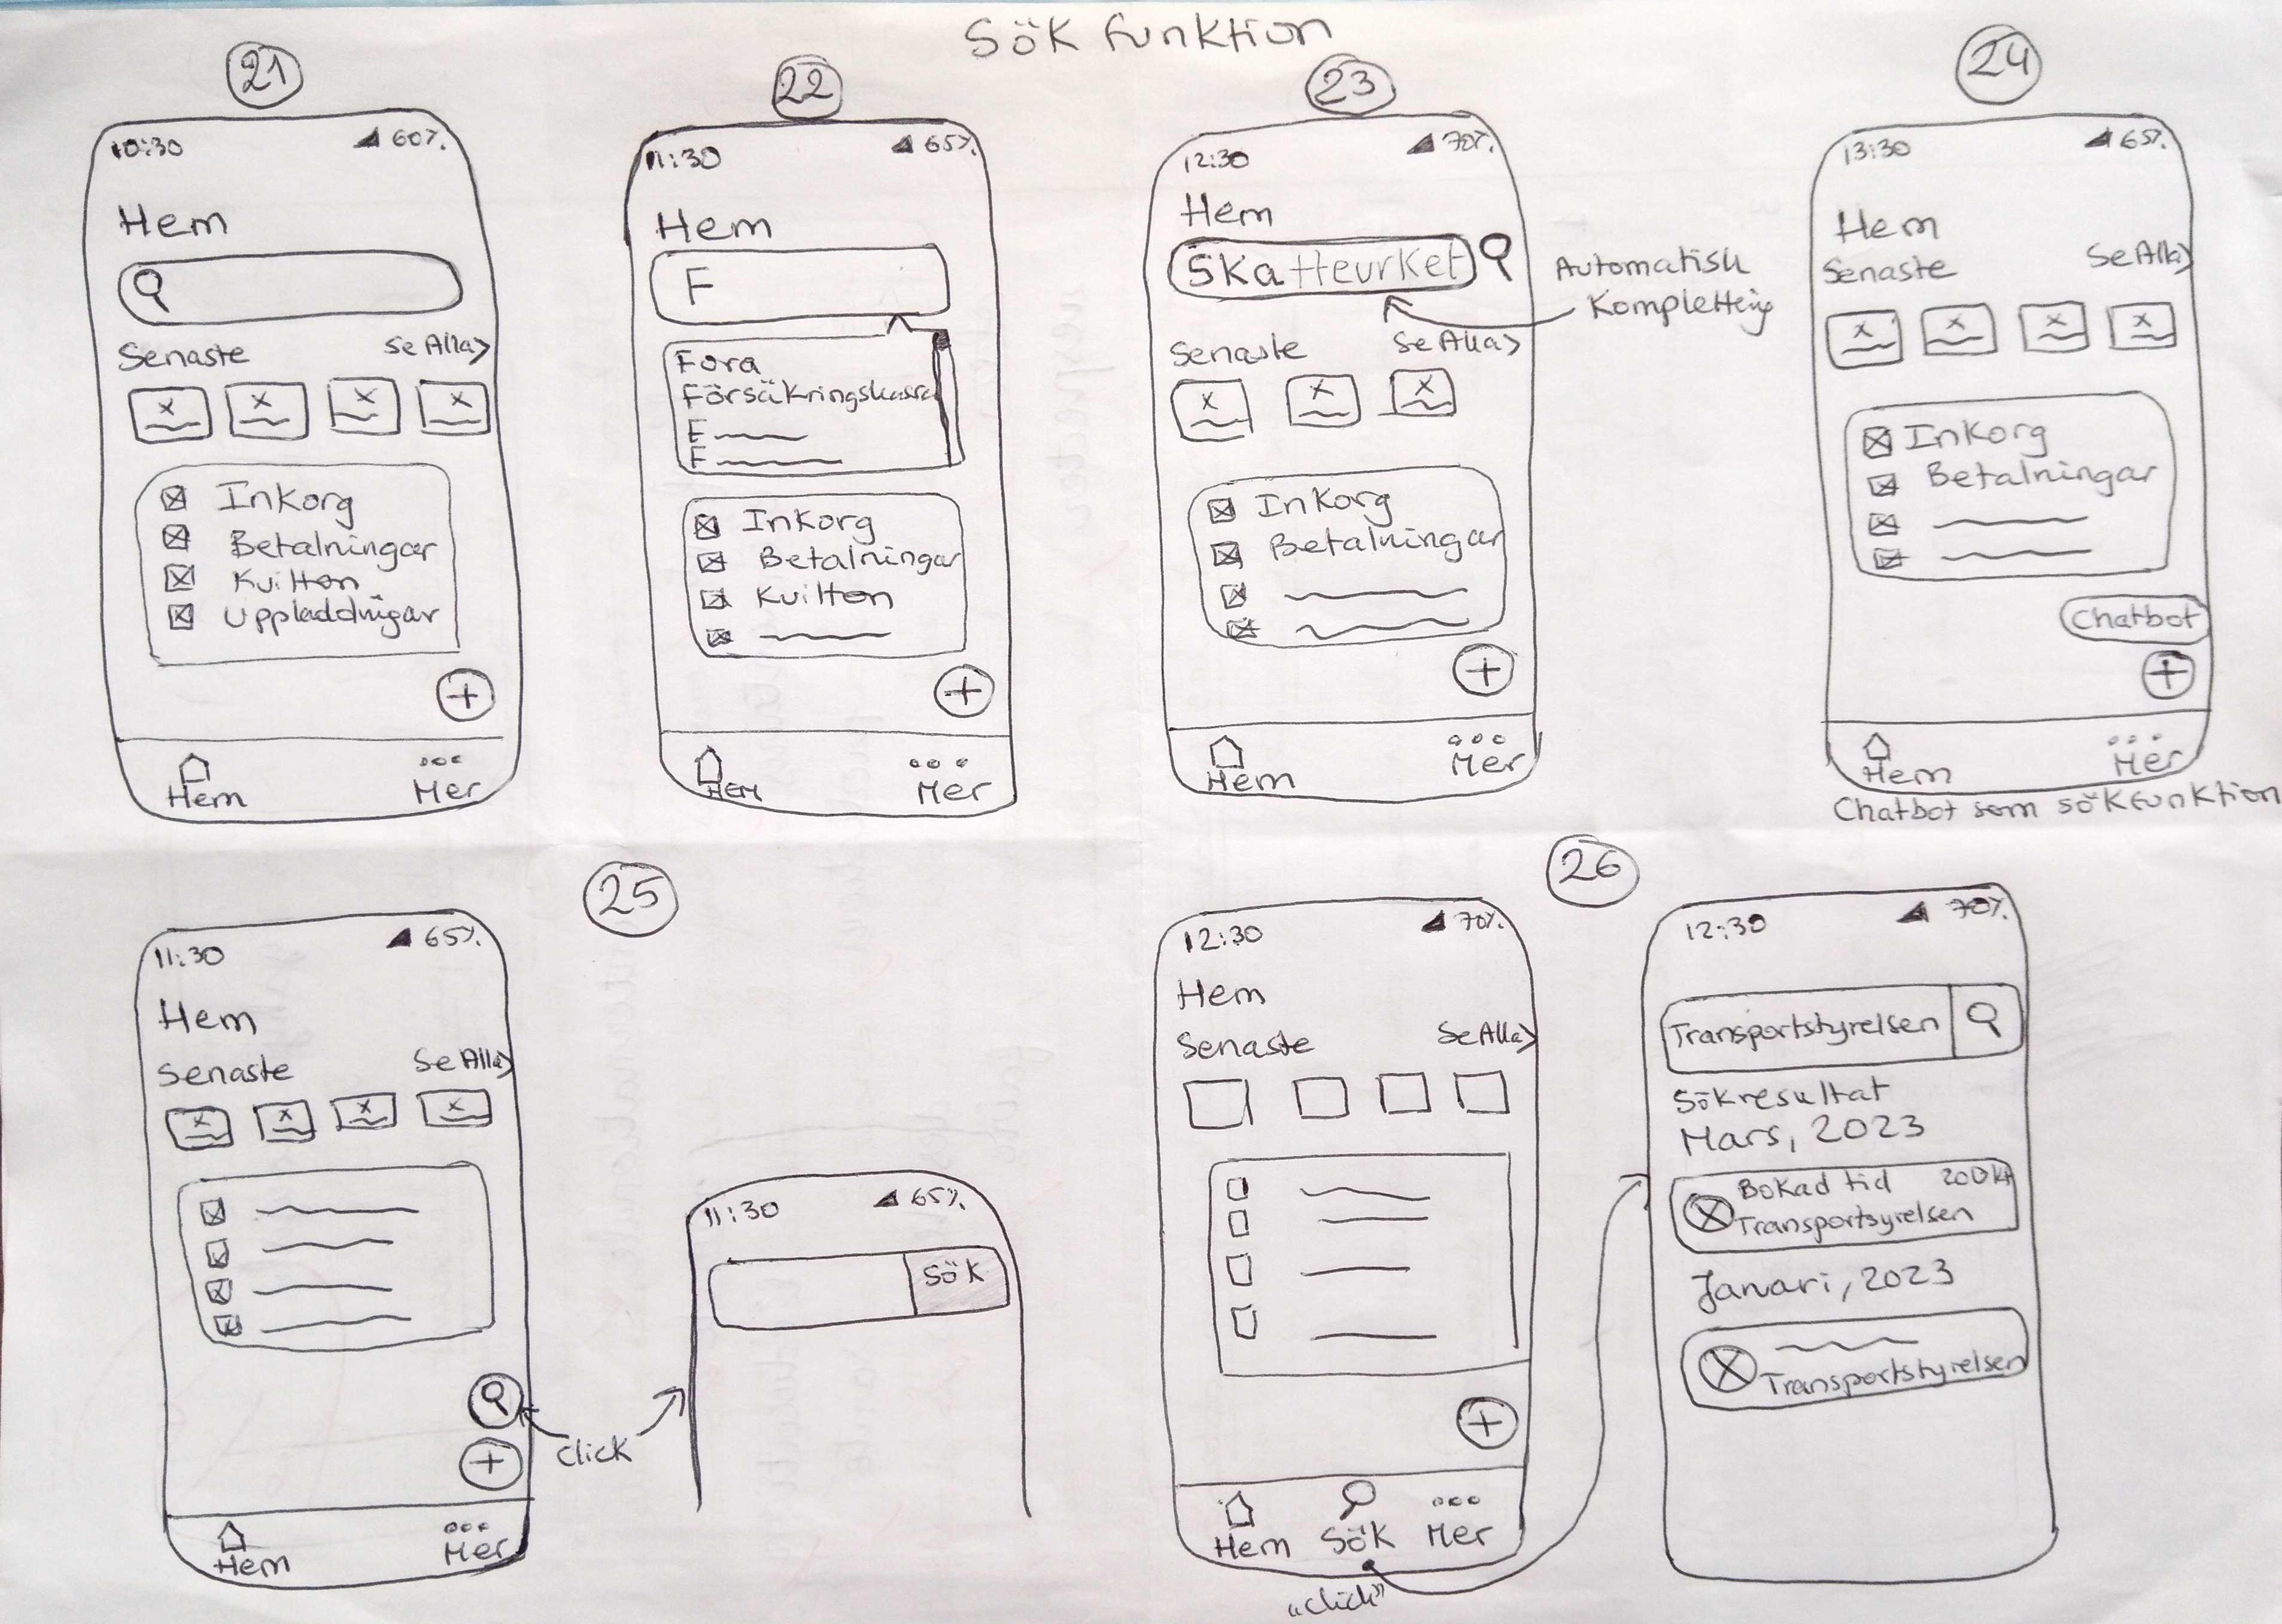 Sök funktion
21
10:30 60%
Hem
Senaste Se Alla>
Inkorg
Betalningar
Kvitton
Uppladdnigar
Hem Mer
22
11:30 65%
Hem
F
Fora
Försäkringskassa
F
F
Inkorg
Betalningar
Kvitton
Hem Mer
23
12:30 70%
Hem
Skatteurket
Automatisk
Senaste Se Alla>
Inkorg
Betalningar
Hem Mer
24
13:30 65%
Hem
Senaste Se Alla>
Inkorg
Betalningar
Chatbot
Hem Mer
Chatbot som sökfunktion
25
11:30 65%
Hem
Senaste Se Alla>
click
Hem Mer
11:30 65%
Sök
26
12:30 70%
Hem
Senaste Se Alla>
Hem Sök Mer
"click"
12:30 70%
Transportstyrelsen
Sökresultat
Mars, 2023
Bokad tid 200kr
Transportsyrelsen
Januari, 2023
Transportstyrelsen